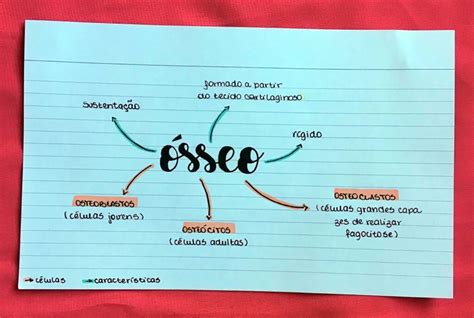 formado a partir
do tecido cartilaginoso
sustentação
rígido
ósseo
OSTEOBLASTOS
(células jovens)
OSTEÓCITOS
(células adultas)
OSTEOCLASTOS
(células grandes capa
zes de realizar
fagocitose)
células
características